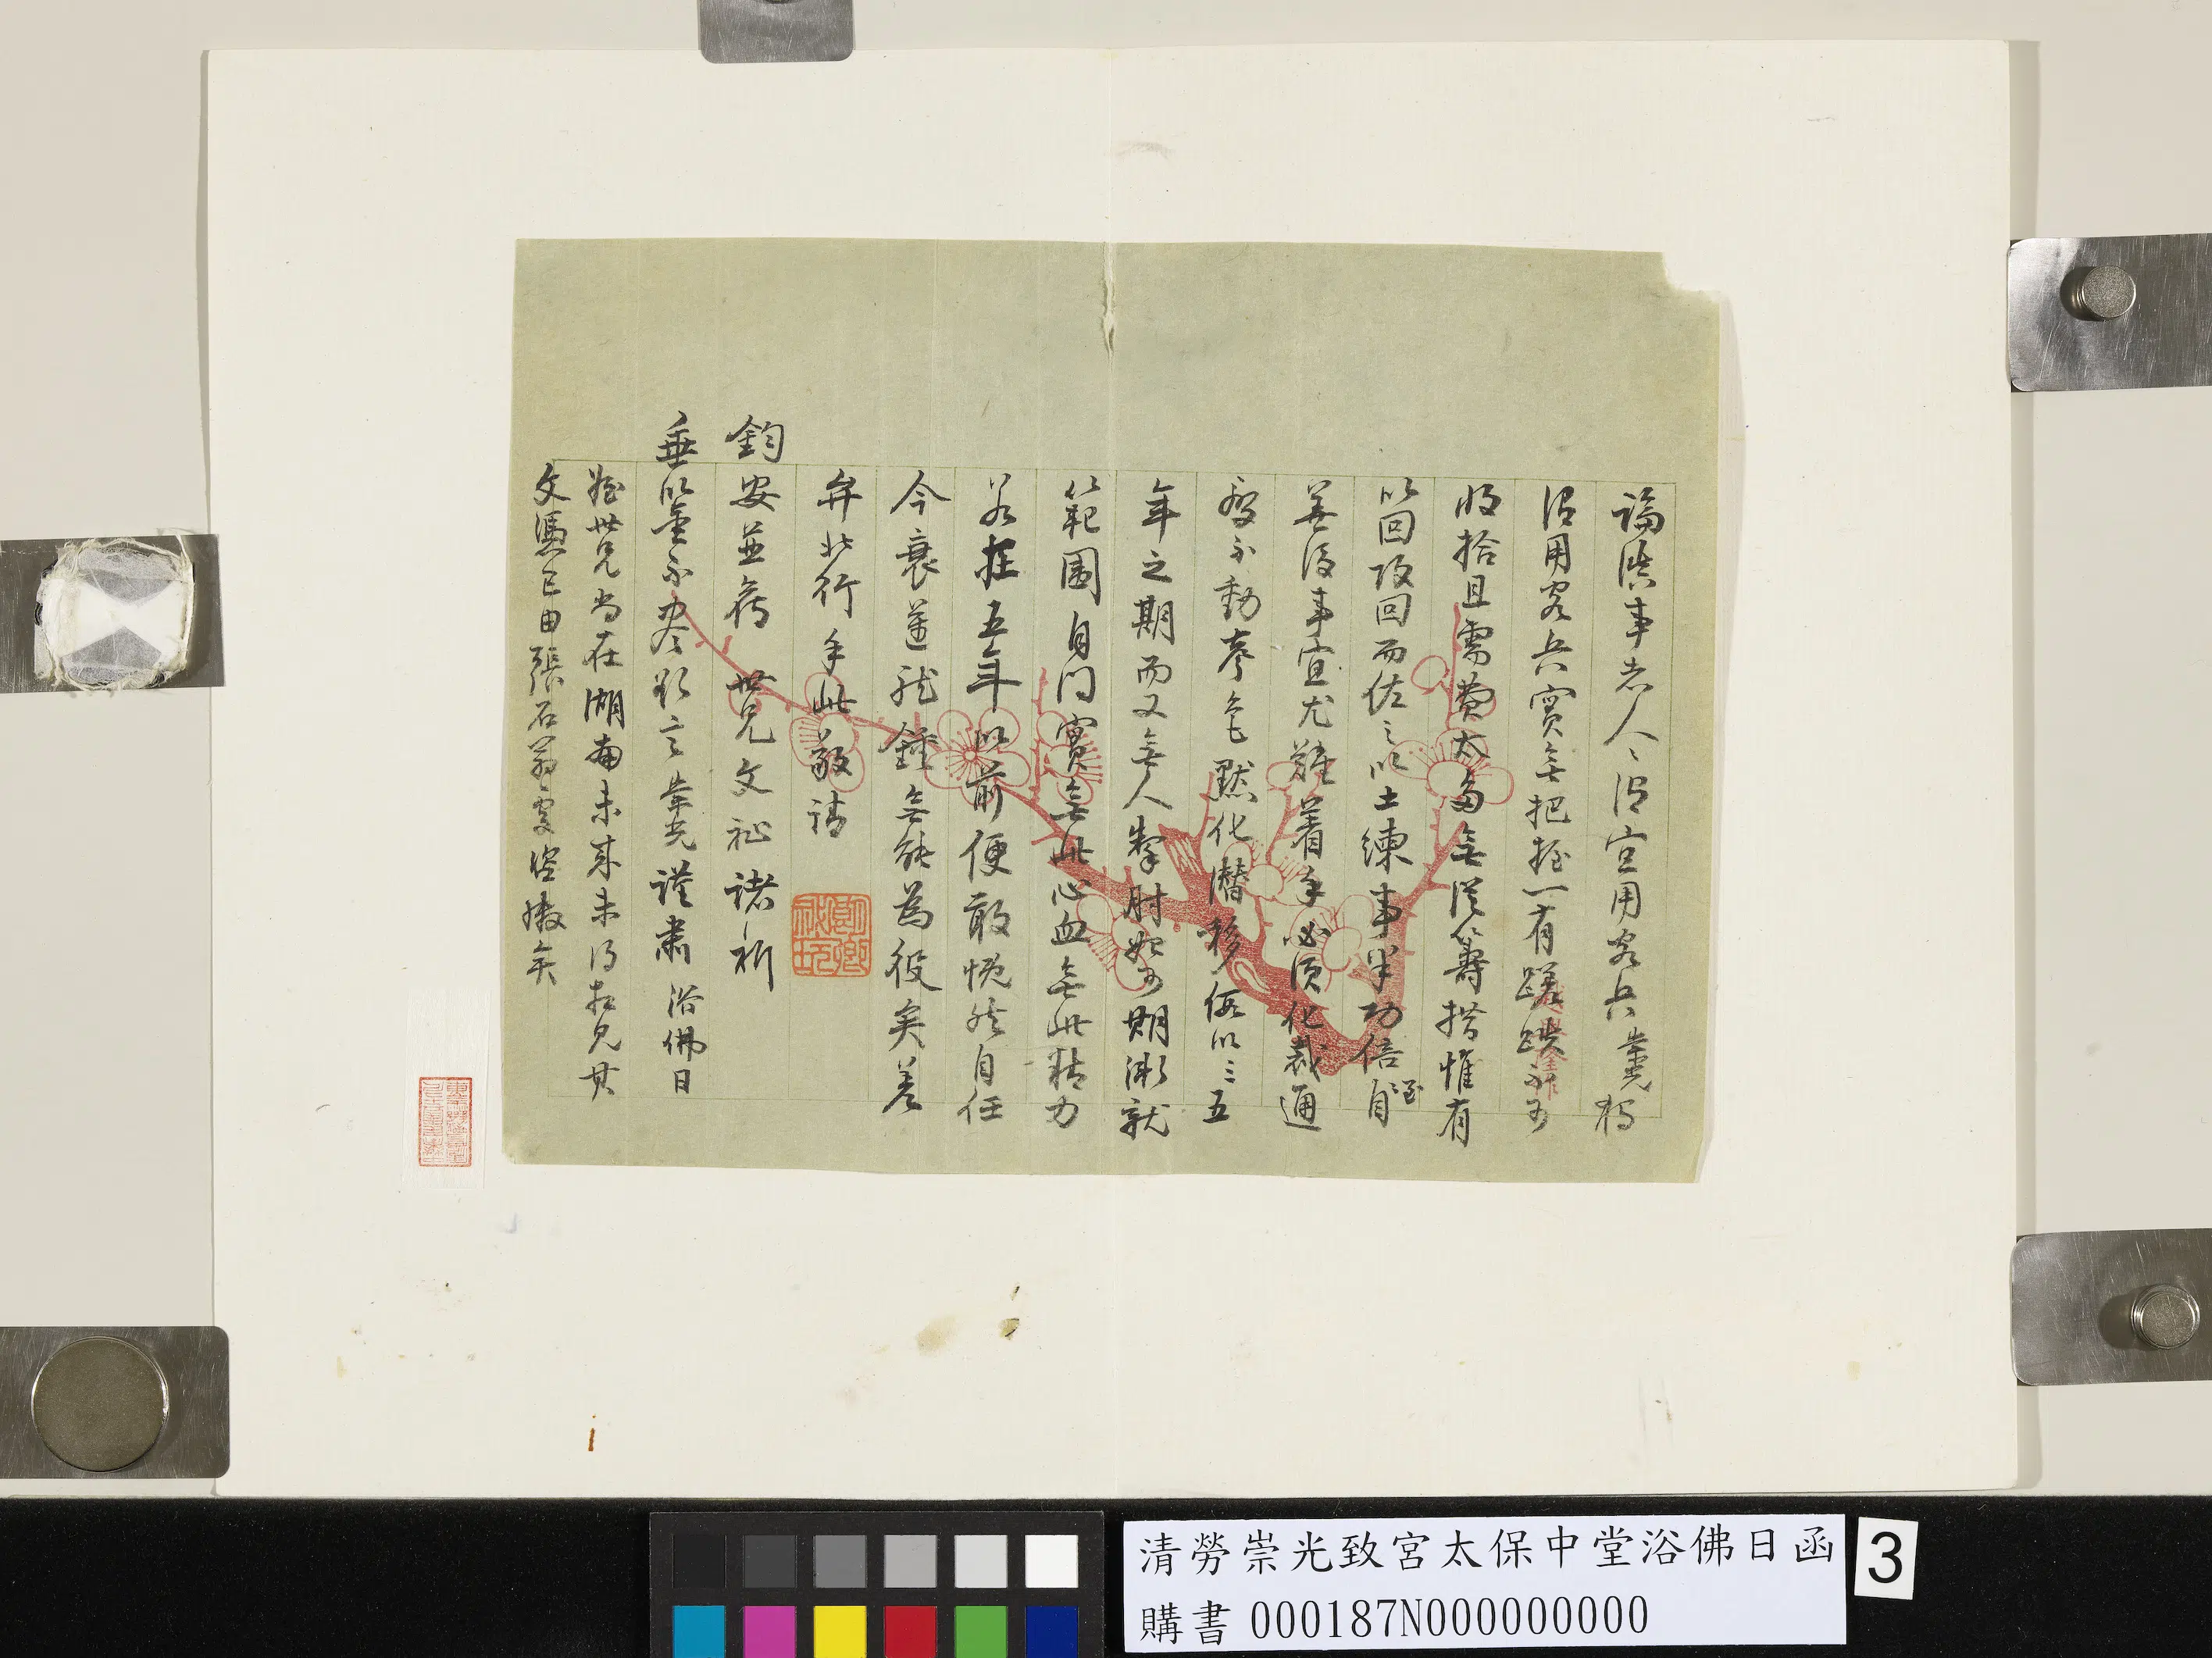 論滇事者人人謂宜用客兵崇光獨
謂用客兵實無把握一有蹉跌不可
收拾且需費太多無從籌措惟有
以回攻回而佐之以土練事半功倍至自
善後事宜尤難着手必須化裁通
變不動聲色默化潛移假以三五
年之期而又無人掣肘始可期漸就
範圍自問實無此心血無此精力
若在五年以前便敢慨然自任
今衰邁龍鍾無能為役矣差
弁北行手此敬請
鈞安並賀 世兄文祉諸祈
垂鑒不盡欲言崇光謹肅 浴佛日
世兄尚在湖南未來未得相見其
文憑已由張石翁處咨繳矣
清勞崇光致宮太保中堂浴佛日函
購書 000187N000000000
3